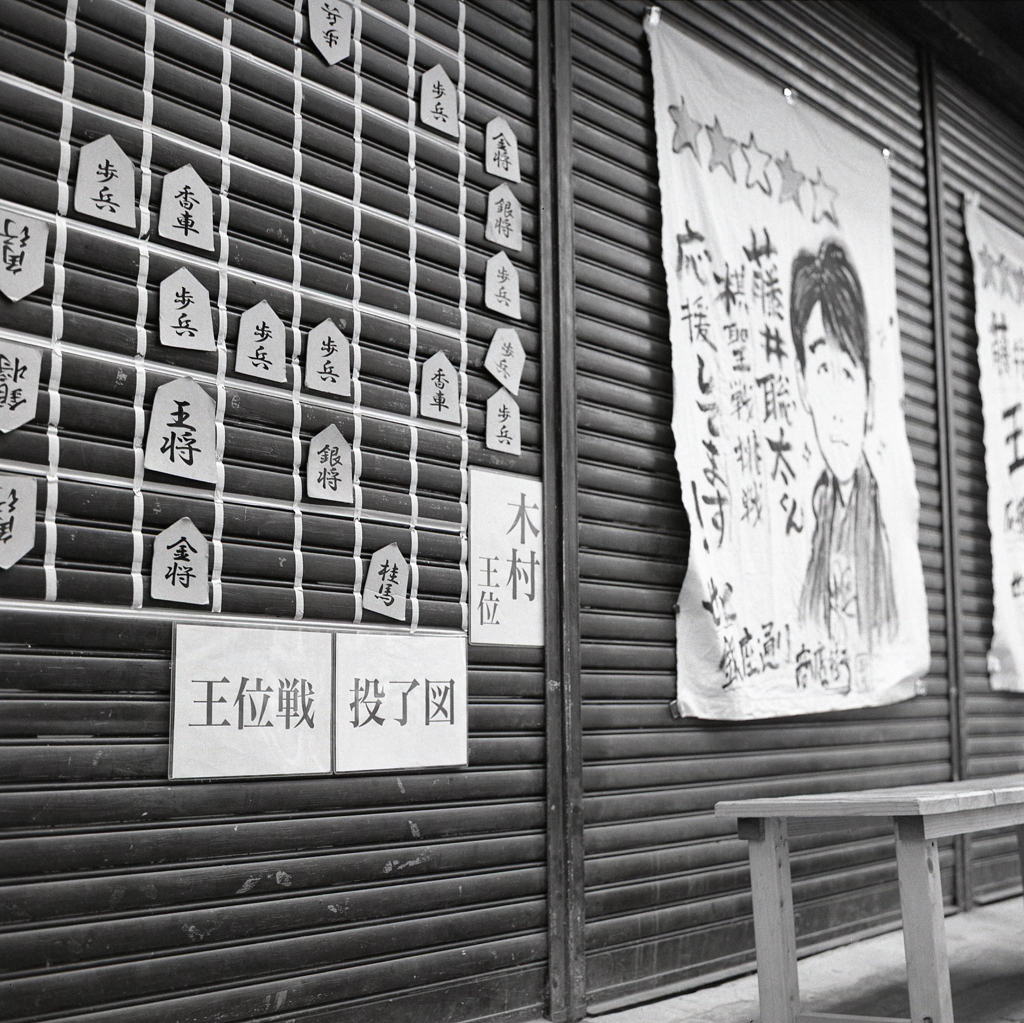 歩兵
歩兵
金将
歩兵
香車
銀将
角行
歩兵
歩兵
歩兵
歩兵
歩兵
銀将
香車
王将
歩兵
銀将
角行
金将
桂馬
木村
王位
王位戦
投了図
藤井聡太さん
棋聖戦挑戦
応援してます!
銀座通り
商店街
藤井
王